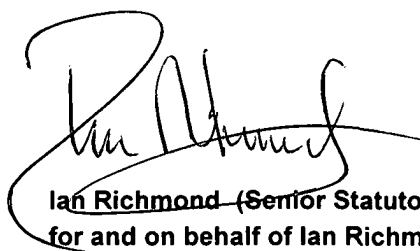 Ian Richmond
Ian Richmond (Senior Statuto
for and on behalf of Ian Richm